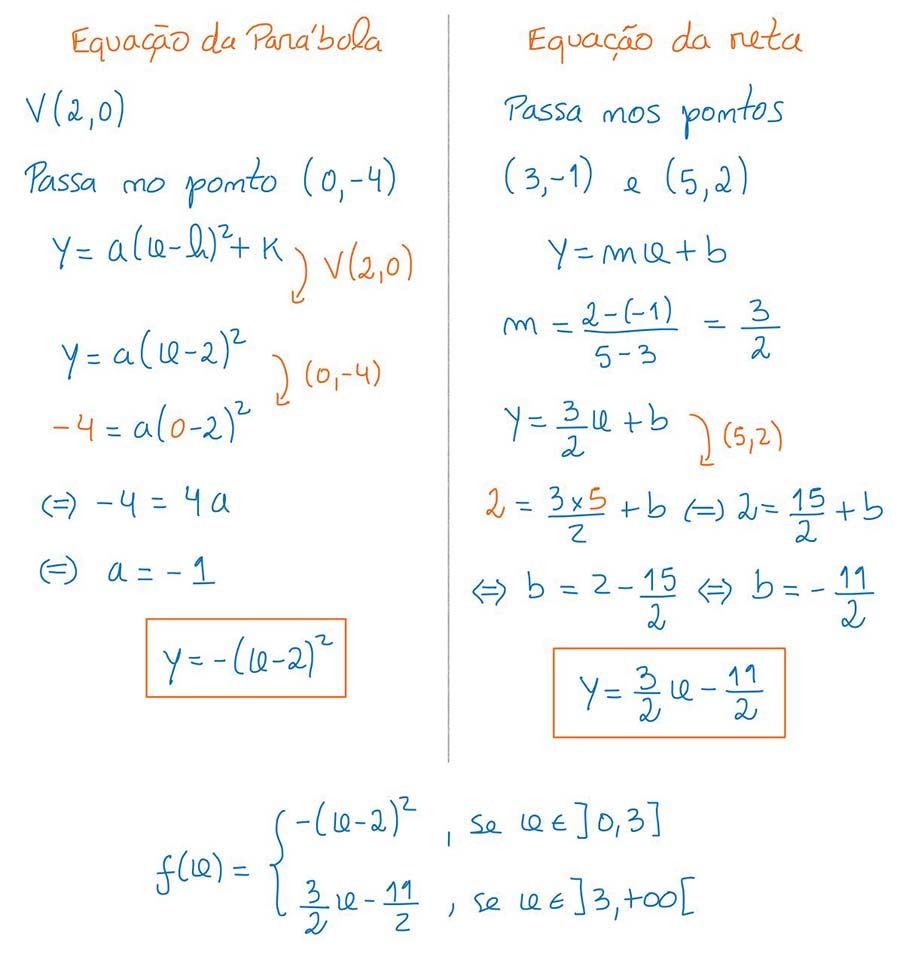 Equação da Parábola
V(2,0)
Passa no ponto (0,-4)
y = a(x-h)²+ K
V(2,0)
y = a(x-2)²
(0,-4)
-4 = a(0-2)²
(=) -4 = 4a
(=) a = -1
y = -(x-2)²
Equação da reta
Passa nos pontos
(3,-1) e (5,2)
y = mx + b
m = \frac{2-(-1)}{5-3} = \frac{3}{2}
y = \frac{3}{2}x + b
(5,2)
2 = \frac{3×5}{2} + b (=) 2 = \frac{15}{2} + b
⇔ b = 2 - \frac{15}{2} ⇔ b = -\frac{11}{2}
y = \frac{3}{2}x - \frac{11}{2}
f(x) = { -(x-2)² , se x ∈ ]0,3]
\frac{3}{2}x - \frac{11}{2} , se x ∈ ]3,+∞[